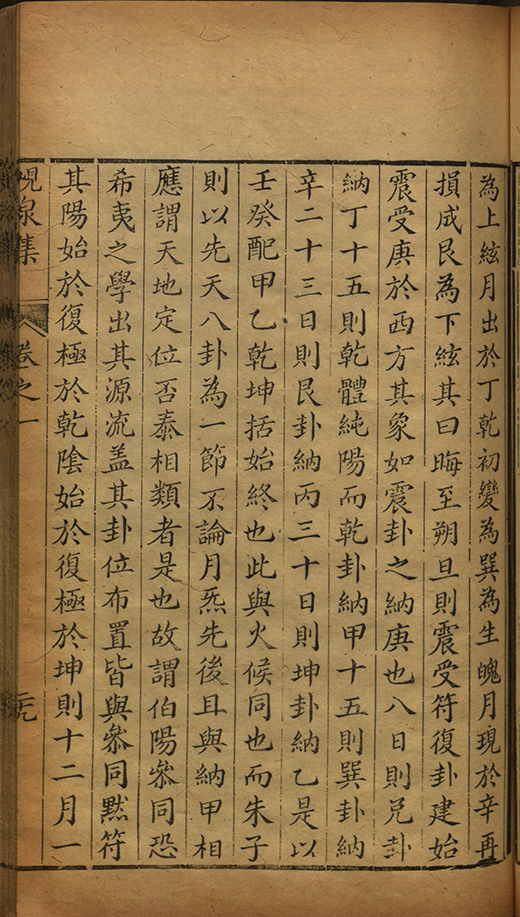 為上絃月出於丁乾初變為巽為生魄月現於辛再
損成艮為下絃其曰晦至朔旦則震受符復卦建始
震受庚於西方其象如震卦之納庚也八日則兌卦
納丁十五則乾體純陽而乾卦納甲十五則巽卦納
辛二十三日則艮卦納丙三十日則坤卦納乙是以
壬癸配甲乙乾坤括始終也此與火候同也而朱子
則以先天八卦為一節不論月炁先後且與納甲相
應謂天地定位否泰相類者是也故謂伯陽叅同恐
希夷之學出其源流盖其卦位布置皆與叅同黙符
其陽始於復極於乾陰始於復極於坤則十二月一
峴泉集 卷之一